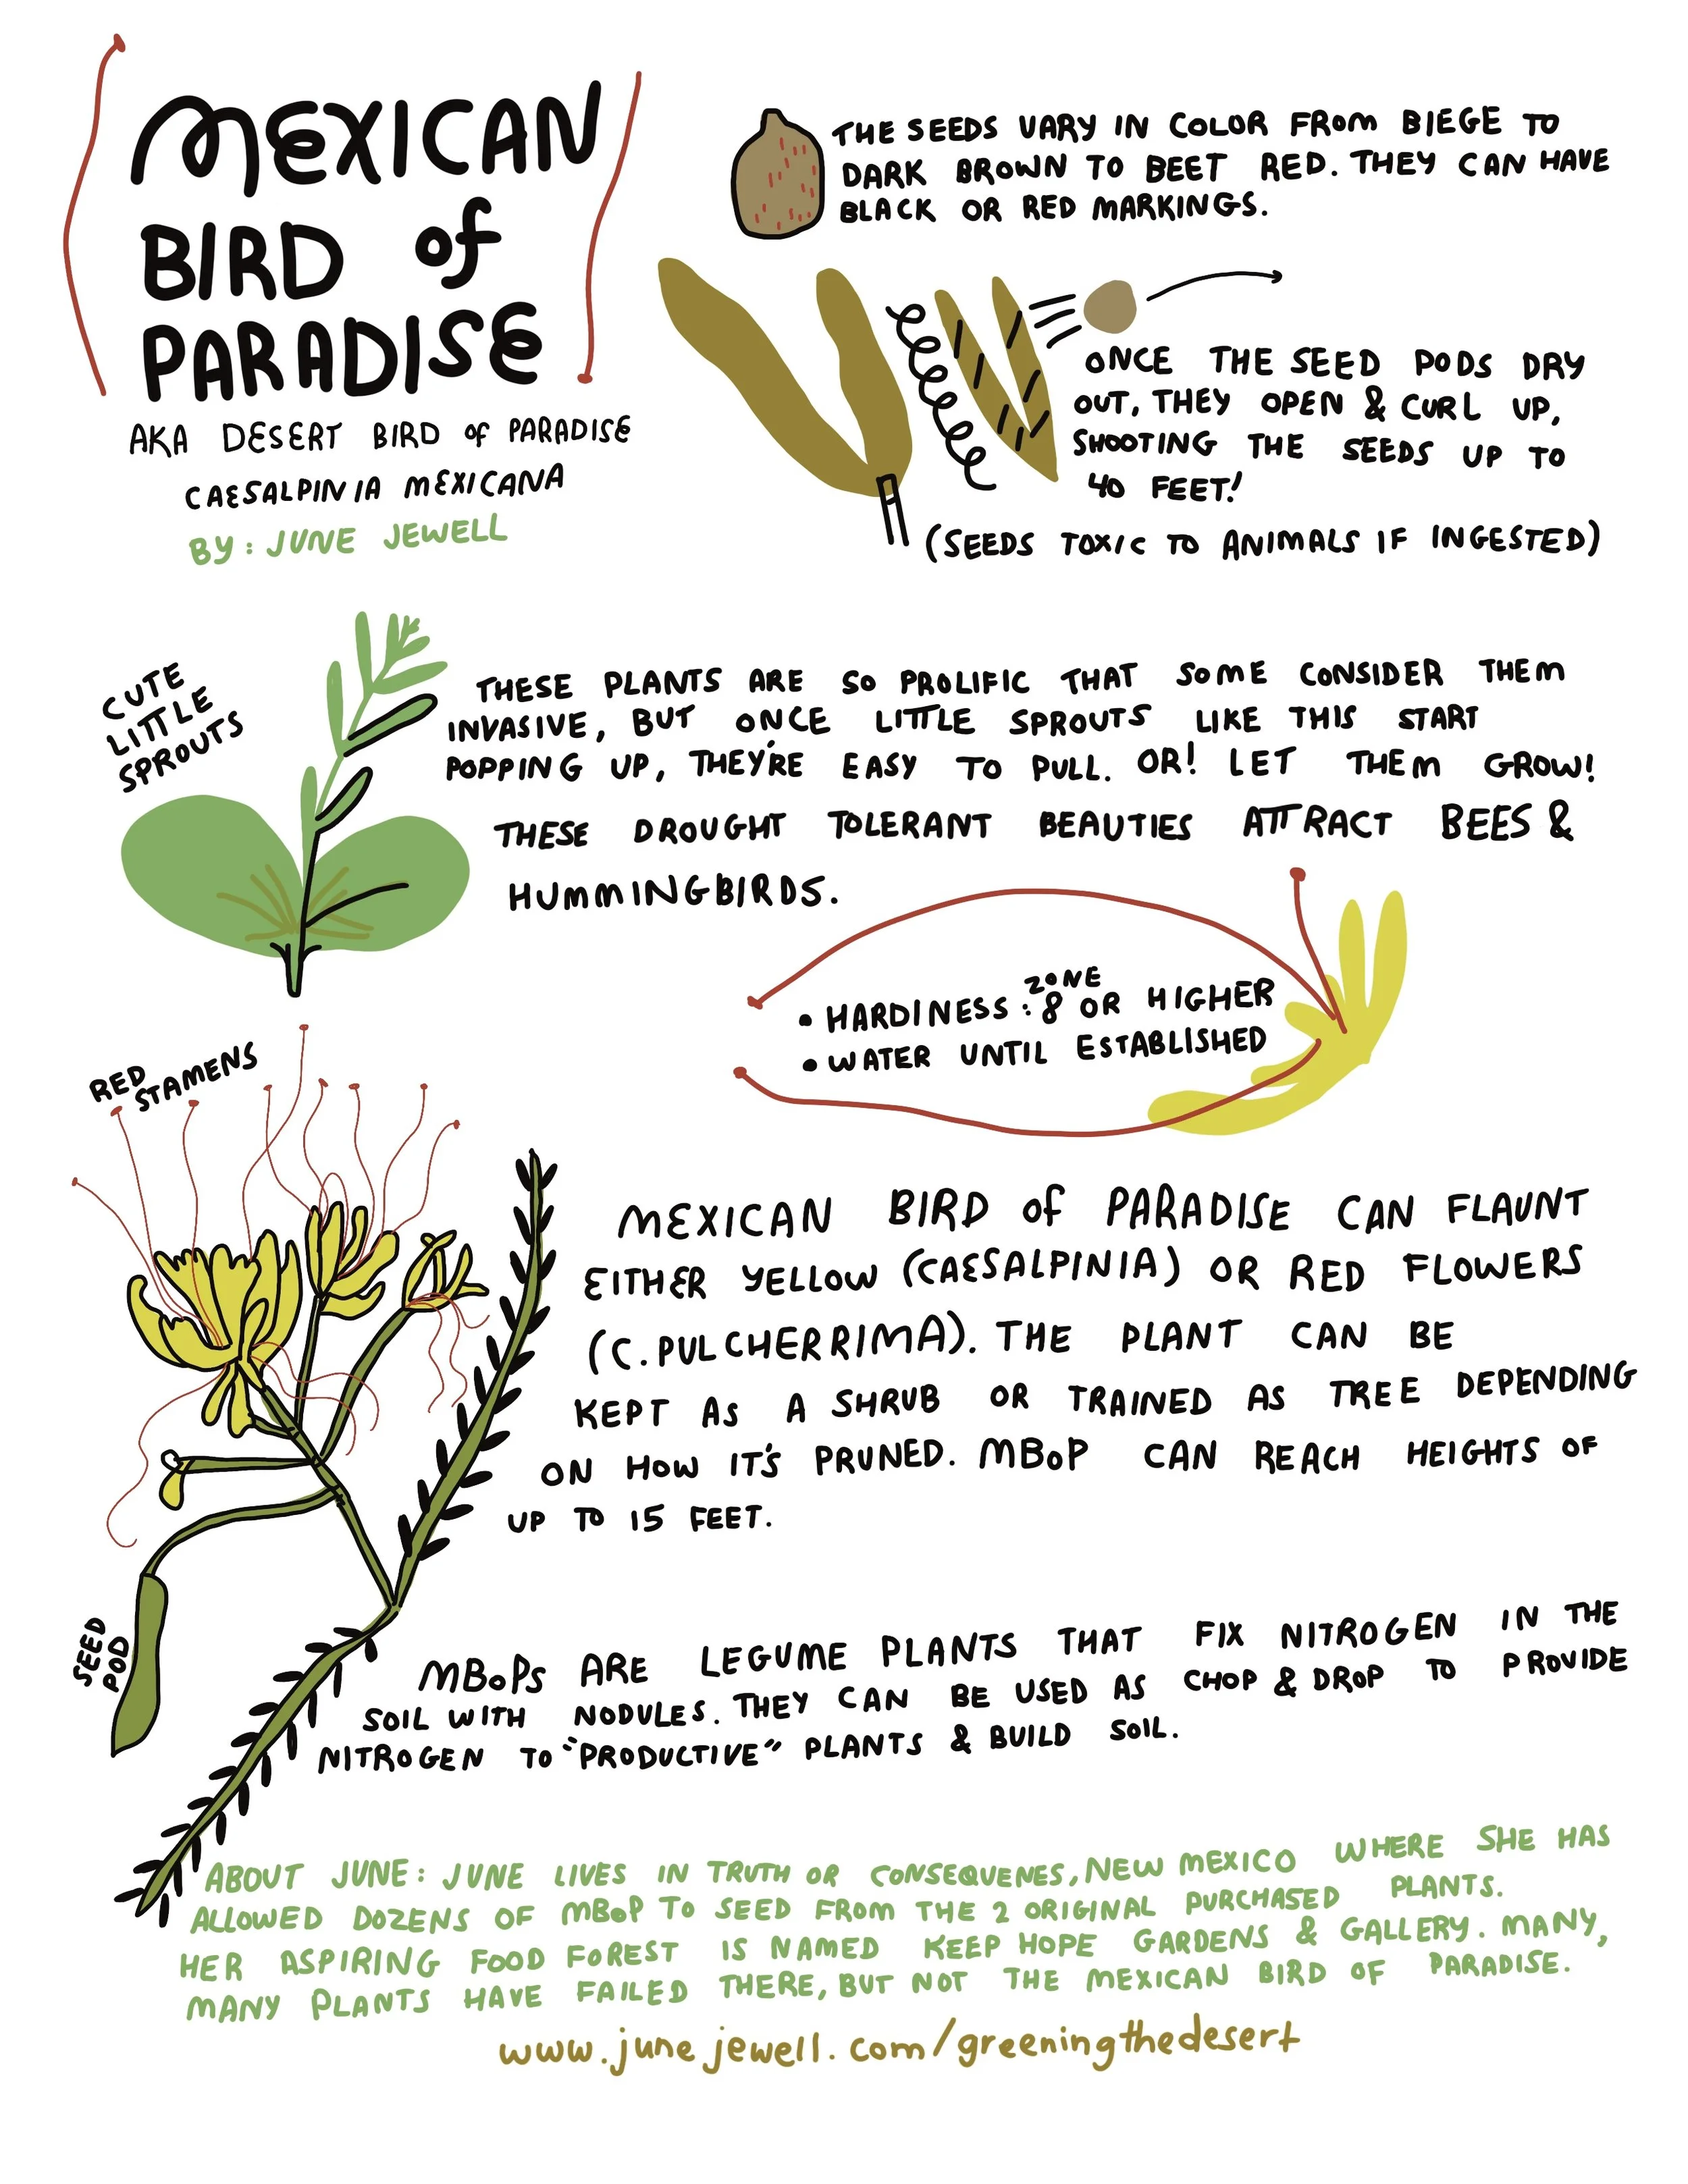 MEXICAN
BIRD of
PARADISE
AKA DESERT BIRD of PARADISE
CAESALPINIA MEXICANA
BY: JUNE JEWELL
THE SEEDS VARY IN COLOR FROM BIEGE TO
DARK BROWN TO BEET RED. THEY CAN HAVE
BLACK OR RED MARKINGS.
ONCE THE SEED PODS DRY
OUT, THEY OPEN & CURL UP,
SHOOTING THE SEEDS UP TO
40 FEET!
(SEEDS TOXIC TO ANIMALS IF INGESTED)
CUTE
LITTLE
SPROUTS
THESE PLANTS ARE SO PROLIFIC THAT SOME CONSIDER THEM
INVASIVE, BUT ONCE LITTLE SPROUTS LIKE THIS START
POPPING UP, THEY'RE EASY TO PULL. OR! LET THEM GROW!
THESE DROUGHT TOLERANT BEAUTIES ATTRACT BEES &
HUMMINGBIRDS.
• HARDINESS: ZONE 8 OR HIGHER
• WATER UNTIL ESTABLISHED
RED
STAMENS
MEXICAN BIRD of PARADISE CAN FLAUNT
EITHER YELLOW (CAESALPINIA) OR RED FLOWERS
(C. PULCHERRIMA). THE PLANT CAN BE
KEPT AS A SHRUB OR TRAINED AS TREE DEPENDING
ON HOW IT'S PRUNED. MBoP CAN REACH HEIGHTS OF
UP TO 15 FEET.
SEED
POD
MBoPs ARE LEGUME PLANTS THAT FIX NITROGEN IN THE
SOIL WITH NODULES. THEY CAN BE USED AS CHOP & DROP TO PROVIDE
NITROGEN TO "PRODUCTIVE" PLANTS & BUILD SOIL.
ABOUT JUNE: JUNE LIVES IN TRUTH OR CONSEQUENES, NEW MEXICO WHERE SHE HAS
ALLOWED DOZENS OF MBoP TO SEED FROM THE 2 ORIGINAL PURCHASED PLANTS.
HER ASPIRING FOOD FOREST IS NAMED KEEP HOPE GARDENS & GALLERY. MANY,
MANY PLANTS HAVE FAILED THERE, BUT NOT THE MEXICAN BIRD OF PARADISE.
www.junejewell.com/greeningthedesert